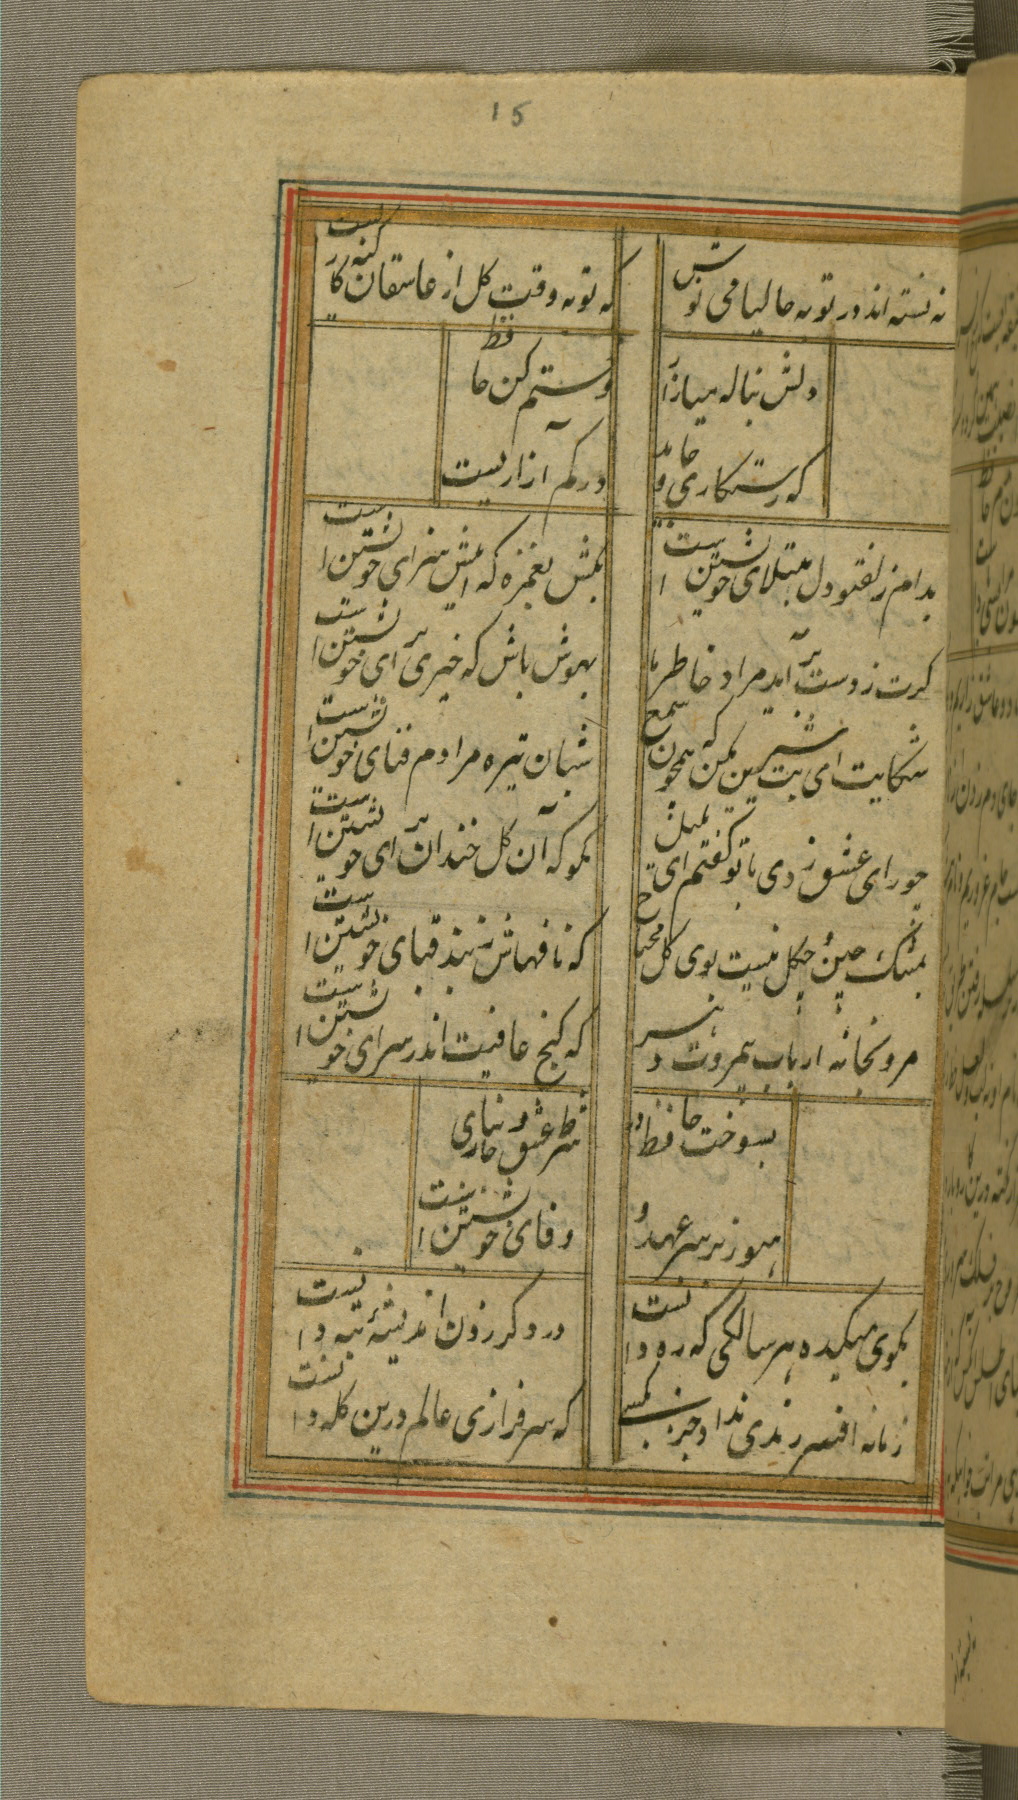 15
نه بسته اند در توبه حالیا می نوش
که توبه وقت کل از عاشقان کنه کاریست
دلش بناله میازار
وستم کن حافظ
که رستکاری جاوید
در کم آزاریست
بدام زلف تو دل مبتلای خویشتن است
بکش بغمزه که اینش سزای خویشتن است
کرت ز دست برآید مراد خاطر ما
بهوش باش که خیری برای خویشتن است
شکایت ای بت شیرین مکن که همچون شمع
شبان تیره مرادم فنای خویشتن است
چو رای عشق زدی با تو کفتم ای بلبل
مکو که آن کل خندان برای خویشتن است
بمشک چین و چکل نیست بوی کل محتاج
که نافهاش ز بند قبای خویشتن است
مرو بخانه ارباب بیمروت دهر
که کنج عافیت اندر سرای خویشتن است
بسوخت حافظ و در
شرط عشق و جانبازی
هنوز بر سر عهد و
وفای خویشتن است
بکوی میکده هر سالکی که ره دانست
در دکر زدن اندیشهٔ تبه دانست
زمانه افسر رندی نداد جز بکسی
که سرفرازی عالم درین کله دانست